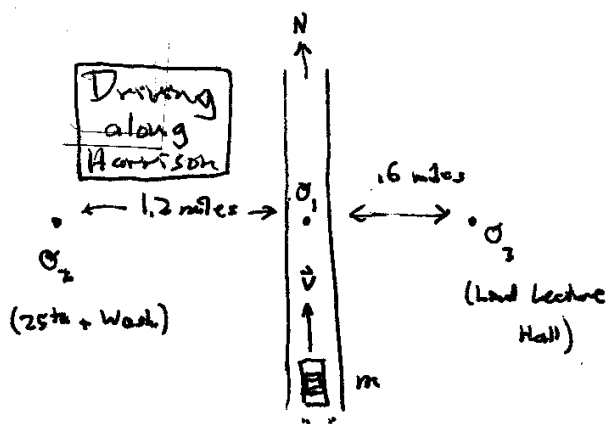 N
Driving
along
Harrison
.6 miles
1.2 miles
O₁
O₂
O₃
(25th + Wash)
v
(Lind Lecture
Hall)
m